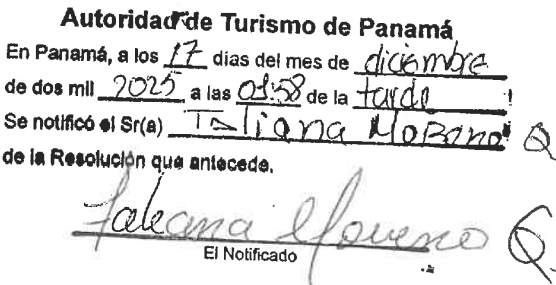 Autoridad de Turismo de Panamá
En Panamá, a los 17 días del mes de diciembre
de dos mil 2025 a las 01:58 de la tarde
Se notificó el Sr(a) Taliana Moreno
de la Resolución que antecede.
Taliana Moreno
El Notificado